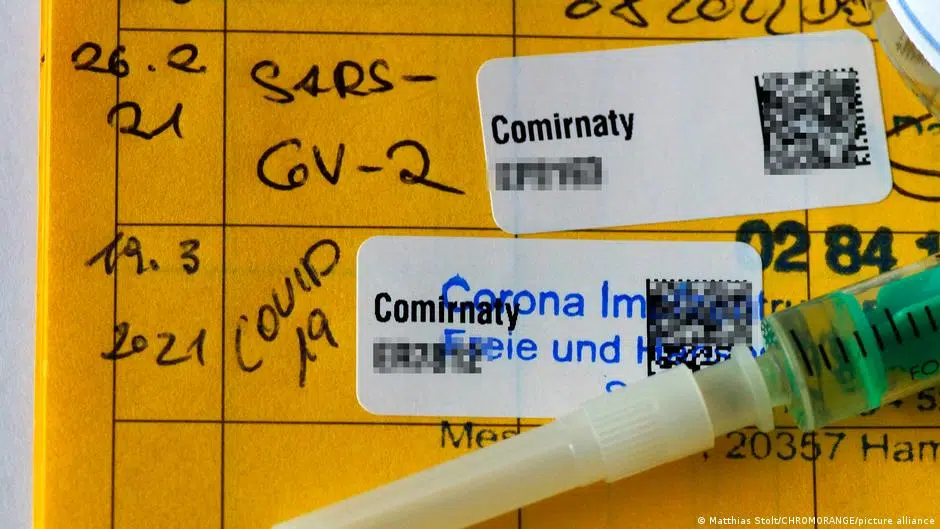 08 2021
26.2
21
SARS-
CoV-2
Comirnaty
02 84
19.3
2021
COVID
19
Comirnaty
Corona Im
Freie und Hans
Mes , 20357 Ham
© Matthias Stolt/CHROMORANGE/picture alliance